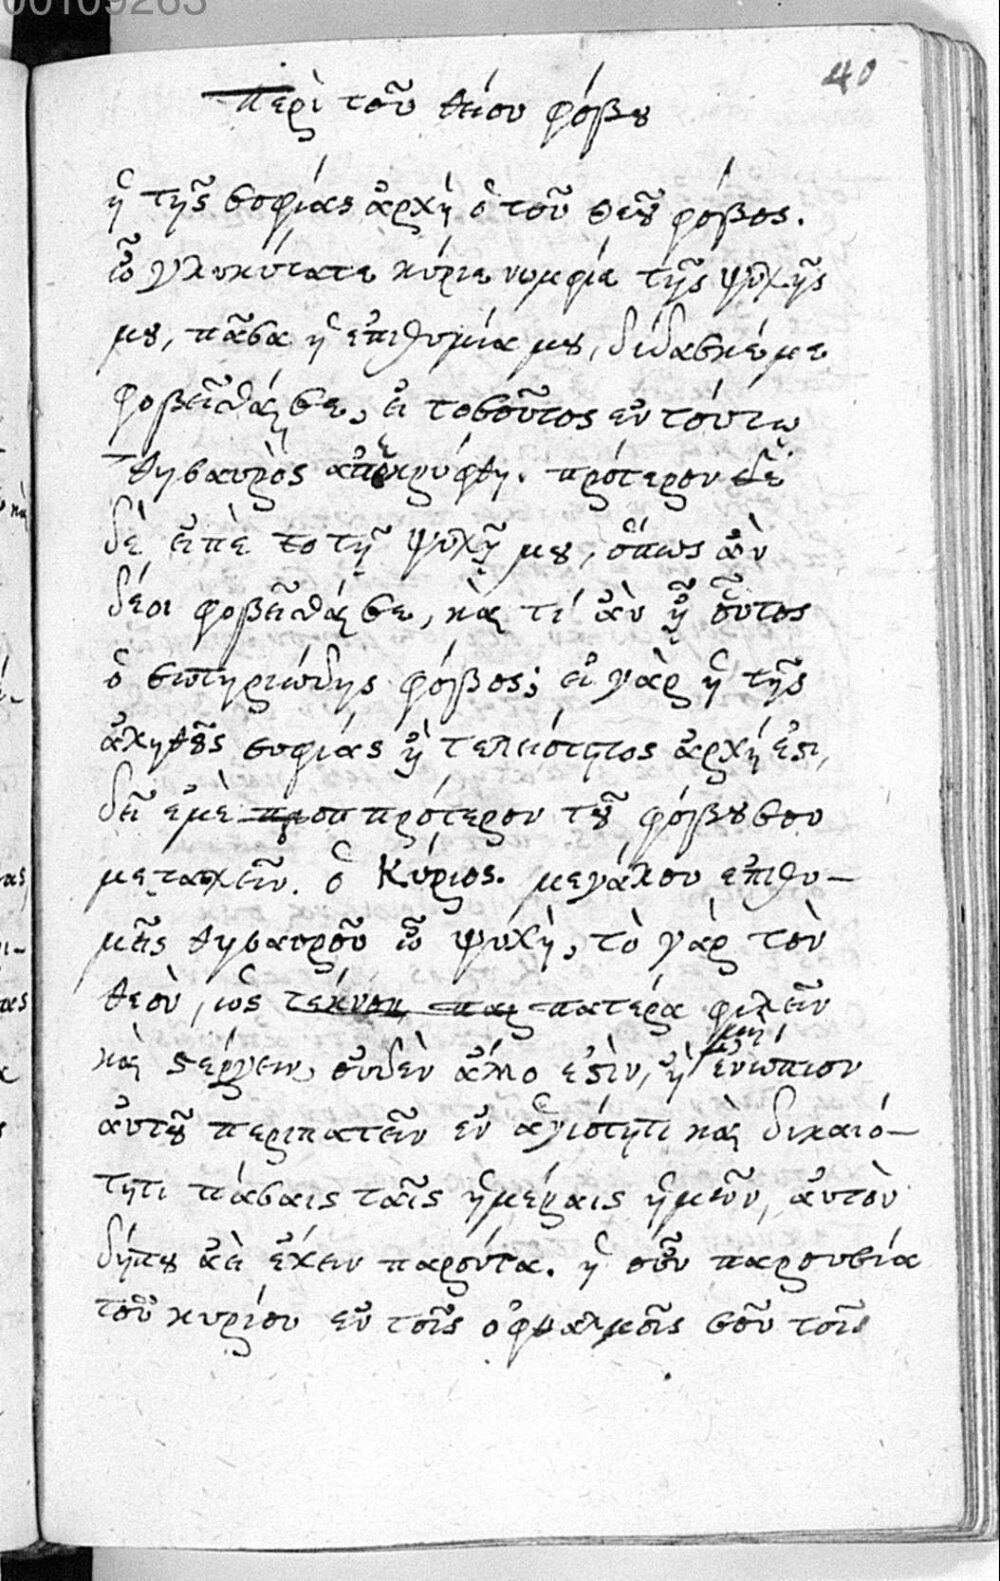 00109263
40
Περὶ τοῦ θείου φόβου
ἡ τῆς σοφίας ἀρχὴ ὁ τοῦ θεοῦ φόβος.
ὦ γλυκύτατε κύριε νυμφίε τῆς ψυχῆς
μου, πᾶσα ἡ ἐπιθυμία μου, δίδασκέ με
φοβεῖσθαί σε, εἰ τοσοῦτος ἐν τούτῳ
θησαυρὸς ἀπεκρύφθη. πρότερον δὲ
δὲ εἰπὲ το τῇ ψυχῇ μου, ὅπως ἂν
δέοι φοβεῖσθαί σε, καὶ τί ἂν ᾖ οὗτος
ὁ σωτηριώδης φόβος; εἰ γὰρ ἡ τῆς
ἀληθοῦς σοφίας ἢ τελειότητος ἀρχή ἐστι,
δεῖ ἐμὲ προπ πρότερον τοῦ φόβου σου
μετασχεῖν. ὁ Κύριος. μεγάλου ἐπιθυ-
μεῖς θησαυροῦ ὦ ψυχὴ, τὸ γὰρ τὸν
θεὸν, ὡς τέκνον, πατέρα φιλεῖν
καὶ στέργειν, οὐδὲν ἄλλο ἐστὶν, ἢ ἐνώπιον
αὐτοῦ περιπατεῖν ἐν ἁγιότητι καὶ δικαιό-
τητι πάσαις ταῖς ἡμέραις ἡμῶν, αὐτὸν
δήπου ἀεὶ ἔχειν παρόντα. ἡ οὖν παρουσία
τοῦ κυρίου ἐν τοῖς ὀφθαλμοῖς σοῦ τοῖς